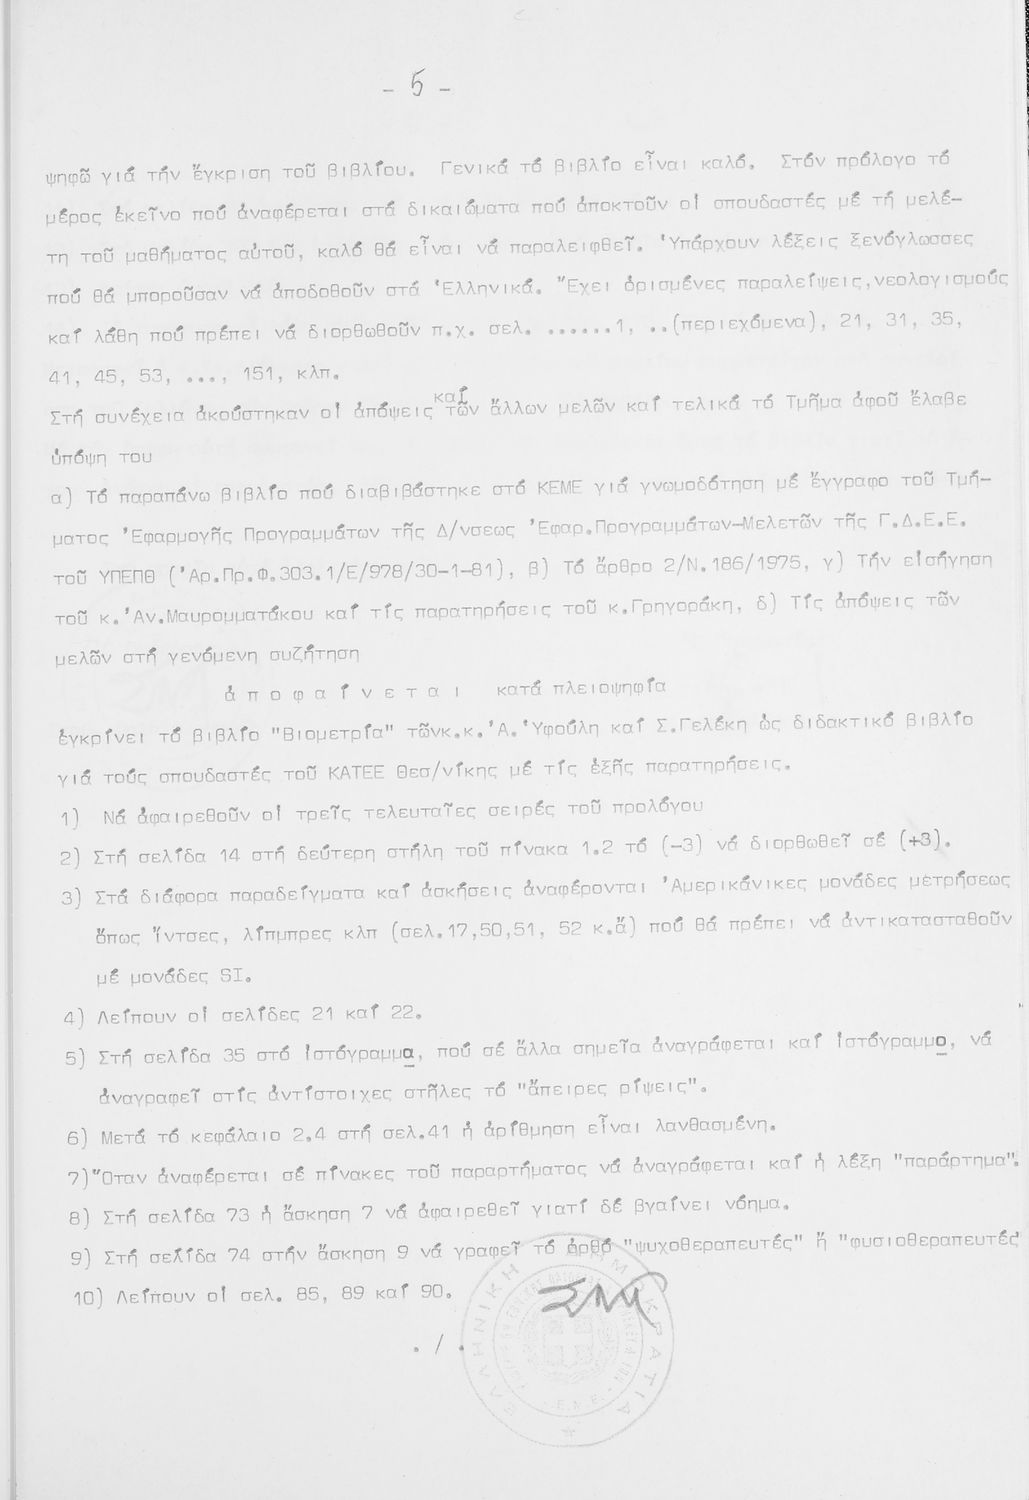 - 5 -
ψηφῶ γιά τήν ἔγκριση τοῦ βιβλίου. Γενικά τό βιβλίο εἶναι καλό. Στόν πρόλογο τό
μέρος ἐκεῖνο πού ἀναφέρεται στά δικαιώματα πού ἀποκτοῦν οἱ σπουδαστές μέ τή μελέ-
τη τοῦ μαθήματος αὐτοῦ, καλό θά εἶναι νά παραλειφθεῖ. Ὑπάρχουν λέξεις ξενόγλωσσες
πού θά μποροῦσαν νά ἀποδοθοῦν στά Ἑλληνικά. Ἔχει ὁρισμένες παραλείψεις, νεολογισμούς
καί λάθη πού πρέπει νά διορθωθοῦν π.χ. σελ. ......1, ..(περιεχόμενα), 21, 31, 35,
41, 45, 53, ..., 151, κλπ.
Στή συνέχεια ἀκούστηκαν οἱ ἀπόψεις καί τῶν ἄλλων μελῶν καί τελικά τό Τμῆμα ἀφοῦ ἔλαβε
ὑπόψη του
α) Τό παραπάνω βιβλίο πού διαβιβάστηκε στό ΚΕΜΕ γιά γνωμοδότηση μέ ἔγγραφο τοῦ Τμή-
ματος Ἐφαρμογῆς Προγραμμάτων τῆς Δ/νσεως Ἐφαρ.Προγραμμάτων-Μελετῶν τῆς Γ.Δ.Ε.Ε.
τοῦ ΥΠΕΠΘ (Ἀρ.Πρ.Φ.303.1/Ε/978/30-1-81), β) Τό ἄρθρο 2/Ν.186/1975, γ) Τήν εἰσήγηση
τοῦ κ. Ἀν.Μαυρομματάκου καί τίς παρατηρήσεις τοῦ κ.Γρηγοράκη, δ) Τίς ἀπόψεις τῶν
μελῶν στή γενόμενη συζήτηση
ἀ π ο φ α ί ν ε τ α ι κατά πλειοψηφία
ἐγκρίνει τό βιβλίο "Βιομετρία" τῶνκ.κ. Ἀ. Ὑφούλη καί Σ.Γελέκη ὡς διδακτικό βιβλίο
γιά τούς σπουδαστές τοῦ ΚΑΤΕΕ Θεσ/νίκης μέ τίς ἑξῆς παρατηρήσεις.
1) Νά ἀφαιρεθοῦν οἱ τρεῖς τελευταῖες σειρές τοῦ προλόγου
2) Στή σελίδα 14 στή δεύτερη στήλη τοῦ πίνακα 1.2 τό (-3) νά διορθωθεῖ σέ (+3).
3) Στά διάφορα παραδείγματα καί ἀσκήσεις ἀναφέρονται Ἀμερικάνικες μονάδες μετρήσεως
ὅπως ἴντσες, λίπμπρες κλπ (σελ.17,50,51, 52 κ.ἄ) πού θά πρέπει νά ἀντικατασταθοῦν
μέ μονάδες SI.
4) Λείπουν οἱ σελίδες 21 καί 22.
5) Στή σελίδα 35 στό ἱστόγραμμα, πού σέ ἄλλα σημεῖα ἀναγράφεται καί ἱστόγραμμο, νά
ἀναγραφεῖ στίς ἀντίστοιχες στῆλες τό "ἄπειρες ρίψεις".
6) Μετά τό κεφάλαιο 2.4 στή σελ.41 ἡ ἀρίθμηση εἶναι λανθασμένη.
7) Ὅταν ἀναφέρεται σέ πίνακες τοῦ παραρτήματος νά ἀναγράφεται καί ἡ λέξη "παράρτημα".
8) Στή σελίδα 73 ἡ ἄσκηση 7 νά ἀφαιρεθεῖ γιατί δέ βγαίνει νόημα.
9) Στή σελίδα 74 στήν ἄσκηση 9 νά γραφεῖ τό ὀρθό "ψυχοθεραπευτές" ἤ "φυσιοθεραπευτές"
10) Λείπουν οἱ σελ. 85, 89 καί 90.
./.
ΕΛΛΗΝΙΚΗ ΔΗΜΟΚΡΑΤΙΑ